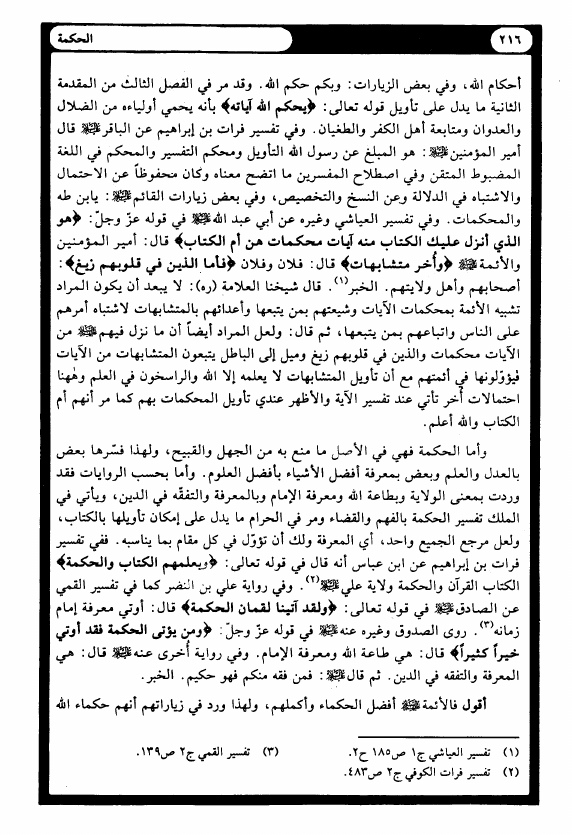 ٢١٦
الحكمة
أحكام الله، وفي بعض الزيارات: وبكم حكم الله. وقد مر في الفصل الثالث من المقدمة
الثانية ما يدل على تأويل قوله تعالى: ﴿يحكم الله آياته﴾ بأنه يحمي أولياءه من الضلال
والعدوان ومتابعة أهل الكفر والطغيان. وفي تفسير فرات بن إبراهيم عن الباقر عليه السلام قال
أمير المؤمنين عليه السلام: هو المبلغ عن رسول الله التأويل ومحكم التفسير والمحكم في اللغة
المضبوط المتقن وفي اصطلاح المفسرين ما اتضح معناه وكان محفوظاً عن الاحتمال
والاشتباه في الدلالة وعن النسخ والتخصيص، وفي بعض زيارات القائم عليه السلام: يابن طه
والمحكمات. وفي تفسير العياشي وغيره عن أبي عبد الله عليه السلام في قوله عزّ وجلّ: ﴿هو
الذي أنزل عليك الكتاب منه آيات محكمات هن أم الكتاب﴾ قال: أمير المؤمنين
والأئمة عليه السلام ﴿وأُخر متشابهات﴾ قال: فلان وفلان ﴿فأما الذين في قلوبهم زيغ﴾:
أصحابهم وأهل ولايتهم. الخبر(١). قال شيخنا العلامة (ره): لا يبعد أن يكون المراد
تشبيه الأئمة بمحكمات الآيات وشيعتهم بمن يتبعها وأعدائهم بالمتشابهات لاشتباه أمرهم
على الناس واتباعهم بمن يتبعها، ثم قال: ولعل المراد أيضاً أن ما نزل فيهم عليه السلام من
الآيات محكمات والذين في قلوبهم زيغ وميل إلى الباطل يتبعون المتشابهات من الآيات
فيؤوّلونها في أئمتهم مع أن تأويل المتشابهات لا يعلمه إلا الله والراسخون في العلم وههنا
احتمالات أُخر تأتي عند تفسير الآية والأظهر عندي تأويل المحكمات بهم كما مر أنهم أم
الكتاب والله أعلم.
وأما الحكمة فهي في الأصل ما منع به من الجهل والقبيح، ولهذا فسّرها بعض
بالعدل والعلم وبعض بمعرفة أفضل الأشياء بأفضل العلوم. وأما بحسب الروايات فقد
وردت بمعنى الولاية وبطاعة الله ومعرفة الإمام وبالمعرفة والتفقّه في الدين، ويأتي في
الملك تفسير الحكمة بالفهم والقضاء ومر في الحرام ما يدل على إمكان تأويلها بالكتاب،
ولعل مرجع الجميع واحد، أي المعرفة ولك أن تؤوّل في كل مقام بما يناسبه. ففي تفسير
فرات بن إبراهيم عن ابن عباس أنه قال في قوله تعالى: ﴿ويعلمهم الكتاب والحكمة﴾
الكتاب القرآن والحكمة ولاية علي عليه السلام(٢). وفي رواية علي بن النضر كما في تفسير القمي
عن الصادق عليه السلام في قوله تعالى: ﴿ولقد آتينا لقمان الحكمة﴾ قال: أوتي معرفة إمام
زمانه(٣). روى الصدوق وغيره عنه عليه السلام في قوله عزّ وجلّ: ﴿ومن يؤتى الحكمة فقد أوتي
خيراً كثيراً﴾ قال: هي طاعة الله ومعرفة الإمام. وفي رواية أُخرى عنه عليه السلام قال: هي
المعرفة والتفقه في الدين. ثم قال عليه السلام: فمن فقه منكم فهو حكيم. الخبر.
أقول فالأئمة عليه السلام أفضل الحكماء وأكملهم، ولهذا ورد في زياراتهم أنهم حكماء الله
(١) تفسير العياشي ج١ ص١٨٥ ح٢.
(٢) تفسير فرات الكوفي ج٢ ص٤٨٣.
(٣) تفسير القمي ج٢ ص١٣٩.